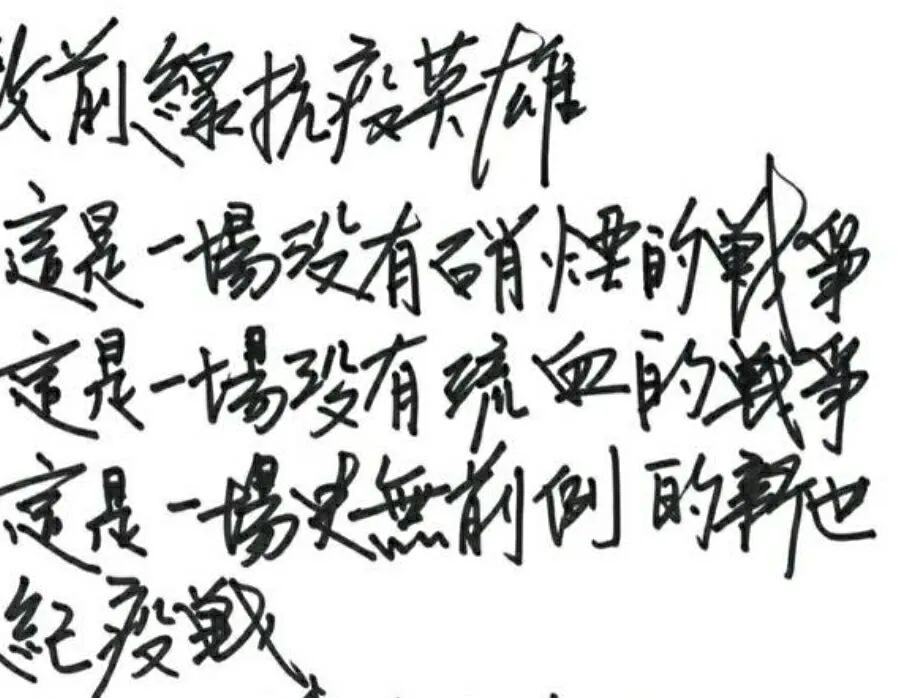 前線抗疫英雄
這是一場没有硝煙的戰爭
這是一場没有硫血的戰爭
這是一場史無前例的新世
紀疫戰